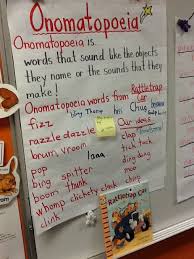 Onomatopoeia
Onomatopoeia is
words that sound like the objects
they name or the sounds that they
make!
Onomatopoeia words from Rattletrap car
fizz
Our ideas
razzle dazzle
clap
brum vroom
tick tock
pop
bing
spitter
ding dong
boom
thunk
moo
whomp
clickety clack
chirp
clink
Rattletrap Car